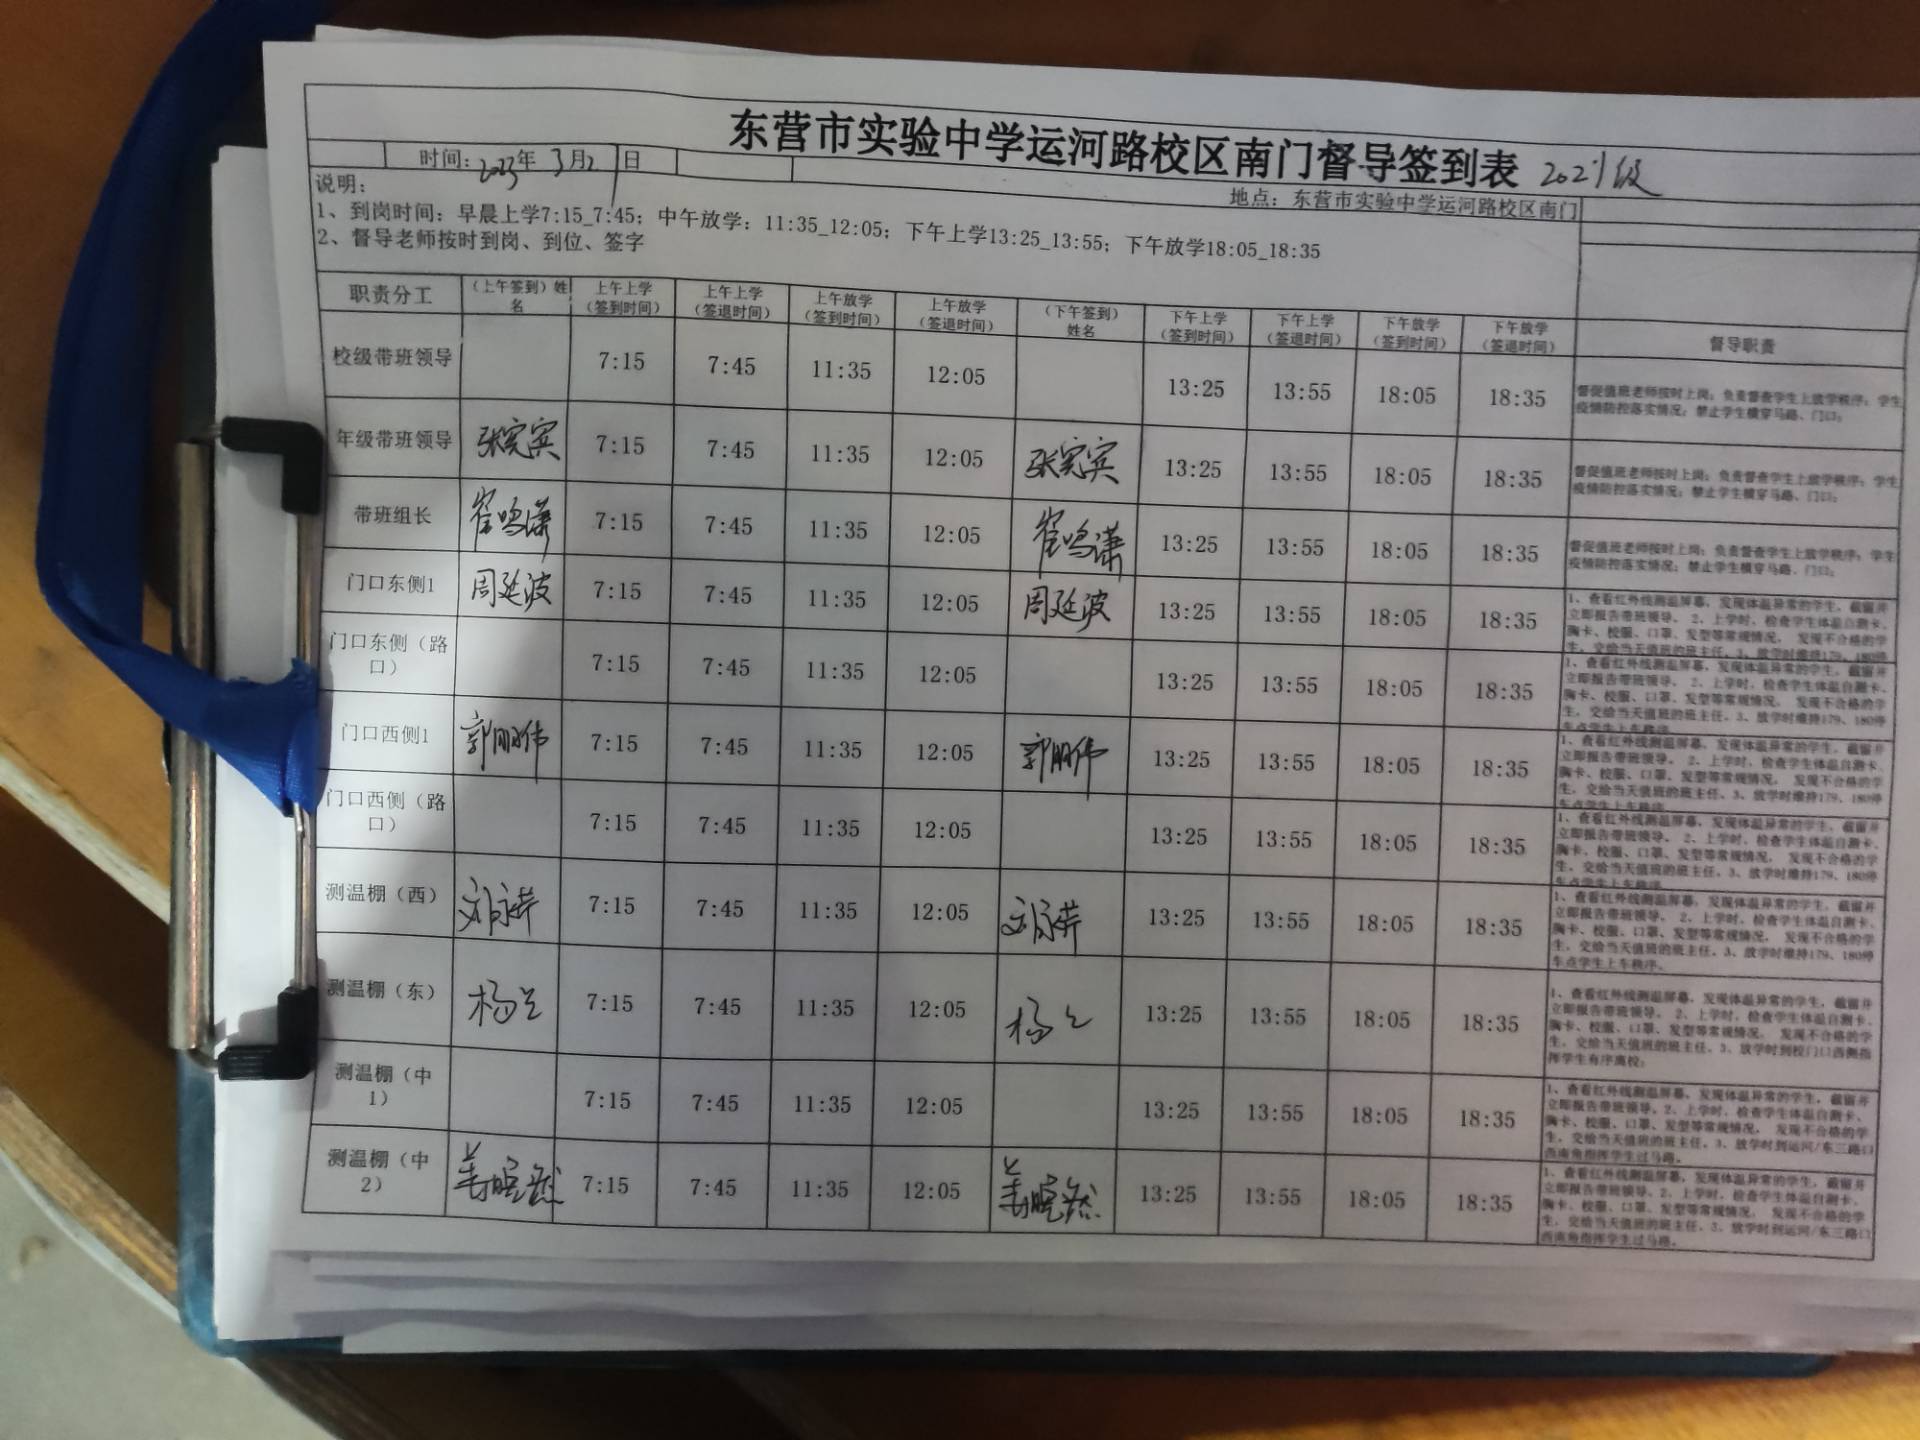 东营市实验中学运河路校区南门督导签到表 2021级
时间：2023年 3月21日
地点：东营市实验中学运河路校区南门
说明：
1、到岗时间：早晨上学7:15_7:45；中午放学：11:35_12:05；下午上学13:25_13:55；下午放学18:05_18:35
2、督导老师按时到岗、到位、签字
职责分工 （上午签到）姓名 上午上学（签到时间） 上午上学（签退时间） 上午放学（签到时间） 上午放学（签退时间） （下午签到）姓名 下午上学（签到时间） 下午上学（签退时间） 下午放学（签到时间） 下午放学（签退时间） 督导职责
校级带班领导 7:15 7:45 11:35 12:05 13:25 13:55 18:05 18:35 督促值班老师按时上岗；负责督查学生上放学秩序；学生
疫情防控落实情况；禁止学生横穿马路、门口；
年级带班领导 张宪宾 7:15 7:45 11:35 12:05 张宪宾 13:25 13:55 18:05 18:35 督促值班老师按时上岗；负责督查学生上放学秩序；学生
疫情防控落实情况；禁止学生横穿马路、门口；
带班组长 崔鸣潇 7:15 7:45 11:35 12:05 崔鸣潇 13:25 13:55 18:05 18:35 督促值班老师按时上岗；负责督查学生上放学秩序；学生
疫情防控落实情况；禁止学生横穿马路、门口；
门口东侧1 周延波 7:15 7:45 11:35 12:05 周延波 13:25 13:55 18:05 18:35 1、查看红外线测温屏幕，发现体温异常的学生，截留并
立即报告带班领导。 2、上学时，检查学生体温自测卡、
胸卡、校服、口罩、发型等常规情况， 发现不合格的学
生，交给当天值班的班主任。3、放学时维持179、180停
门口东侧（路口） 7:15 7:45 11:35 12:05 13:25 13:55 18:05 18:35 1、查看红外线测温屏幕，发现体温异常的学生，截留并
立即报告带班领导。 2、上学时，检查学生体温自测卡、
胸卡、校服、口罩、发型等常规情况， 发现不合格的学
生，交给当天值班的班主任。3、放学时维持179、180停
车点学生上车秩序。
门口西侧1 郭朋伟 7:15 7:45 11:35 12:05 郭朋伟 13:25 13:55 18:05 18:35 1、查看红外线测温屏幕，发现体温异常的学生，截留并
立即报告带班领导。 2、上学时，检查学生体温自测卡、
胸卡、校服、口罩、发型等常规情况， 发现不合格的学
生，交给当天值班的班主任。3、放学时维持179、180停
车点学生上车秩序。
门口西侧（路口） 7:15 7:45 11:35 12:05 13:25 13:55 18:05 18:35 1、查看红外线测温屏幕，发现体温异常的学生，截留并
立即报告带班领导。 2、上学时，检查学生体温自测卡、
胸卡、校服、口罩、发型等常规情况， 发现不合格的学
生，交给当天值班的班主任。3、放学时维持179、180停
车点学生上车秩序。
测温棚（西） 7:15 7:45 11:35 12:05 13:25 13:55 18:05 18:35 1、查看红外线测温屏幕，发现体温异常的学生，截留并
立即报告带班领导。 2、上学时，检查学生体温自测卡、
胸卡、校服、口罩、发型等常规情况， 发现不合格的学
生，交给当天值班的班主任。3、放学时维持179、180停
车点学生上车秩序。
测温棚（东） 7:15 7:45 11:35 12:05 13:25 13:55 18:05 18:35 1、查看红外线测温屏幕，发现体温异常的学生，截留并
立即报告带班领导。 2、上学时，检查学生体温自测卡、
胸卡、校服、口罩、发型等常规情况， 发现不合格的学
生，交给当天值班的班主任。3、放学时到校门口西侧指
挥学生有序离校；
测温棚（中1） 7:15 7:45 11:35 12:05 13:25 13:55 18:05 18:35 1、查看红外线测温屏幕，发现体温异常的学生，截留并
立即报告带班领导。2、上学时，检查学生体温自测卡、
胸卡、校服、口罩、发型等常规情况， 发现不合格的学
生，交给当天值班的班主任。3、放学时到运河/东三路口
西南角指挥学生过马路。
测温棚（中2） 7:15 7:45 11:35 12:05 13:25 13:55 18:05 18:35 1、查看红外线测温屏幕，发现体温异常的学生，截留并
立即报告带班领导。2、上学时，检查学生体温自测卡、
胸卡、校服、口罩、发型等常规情况， 发现不合格的学
生，交给当天值班的班主任。3、放学时到运河/东三路口
西南角指挥学生过马路。